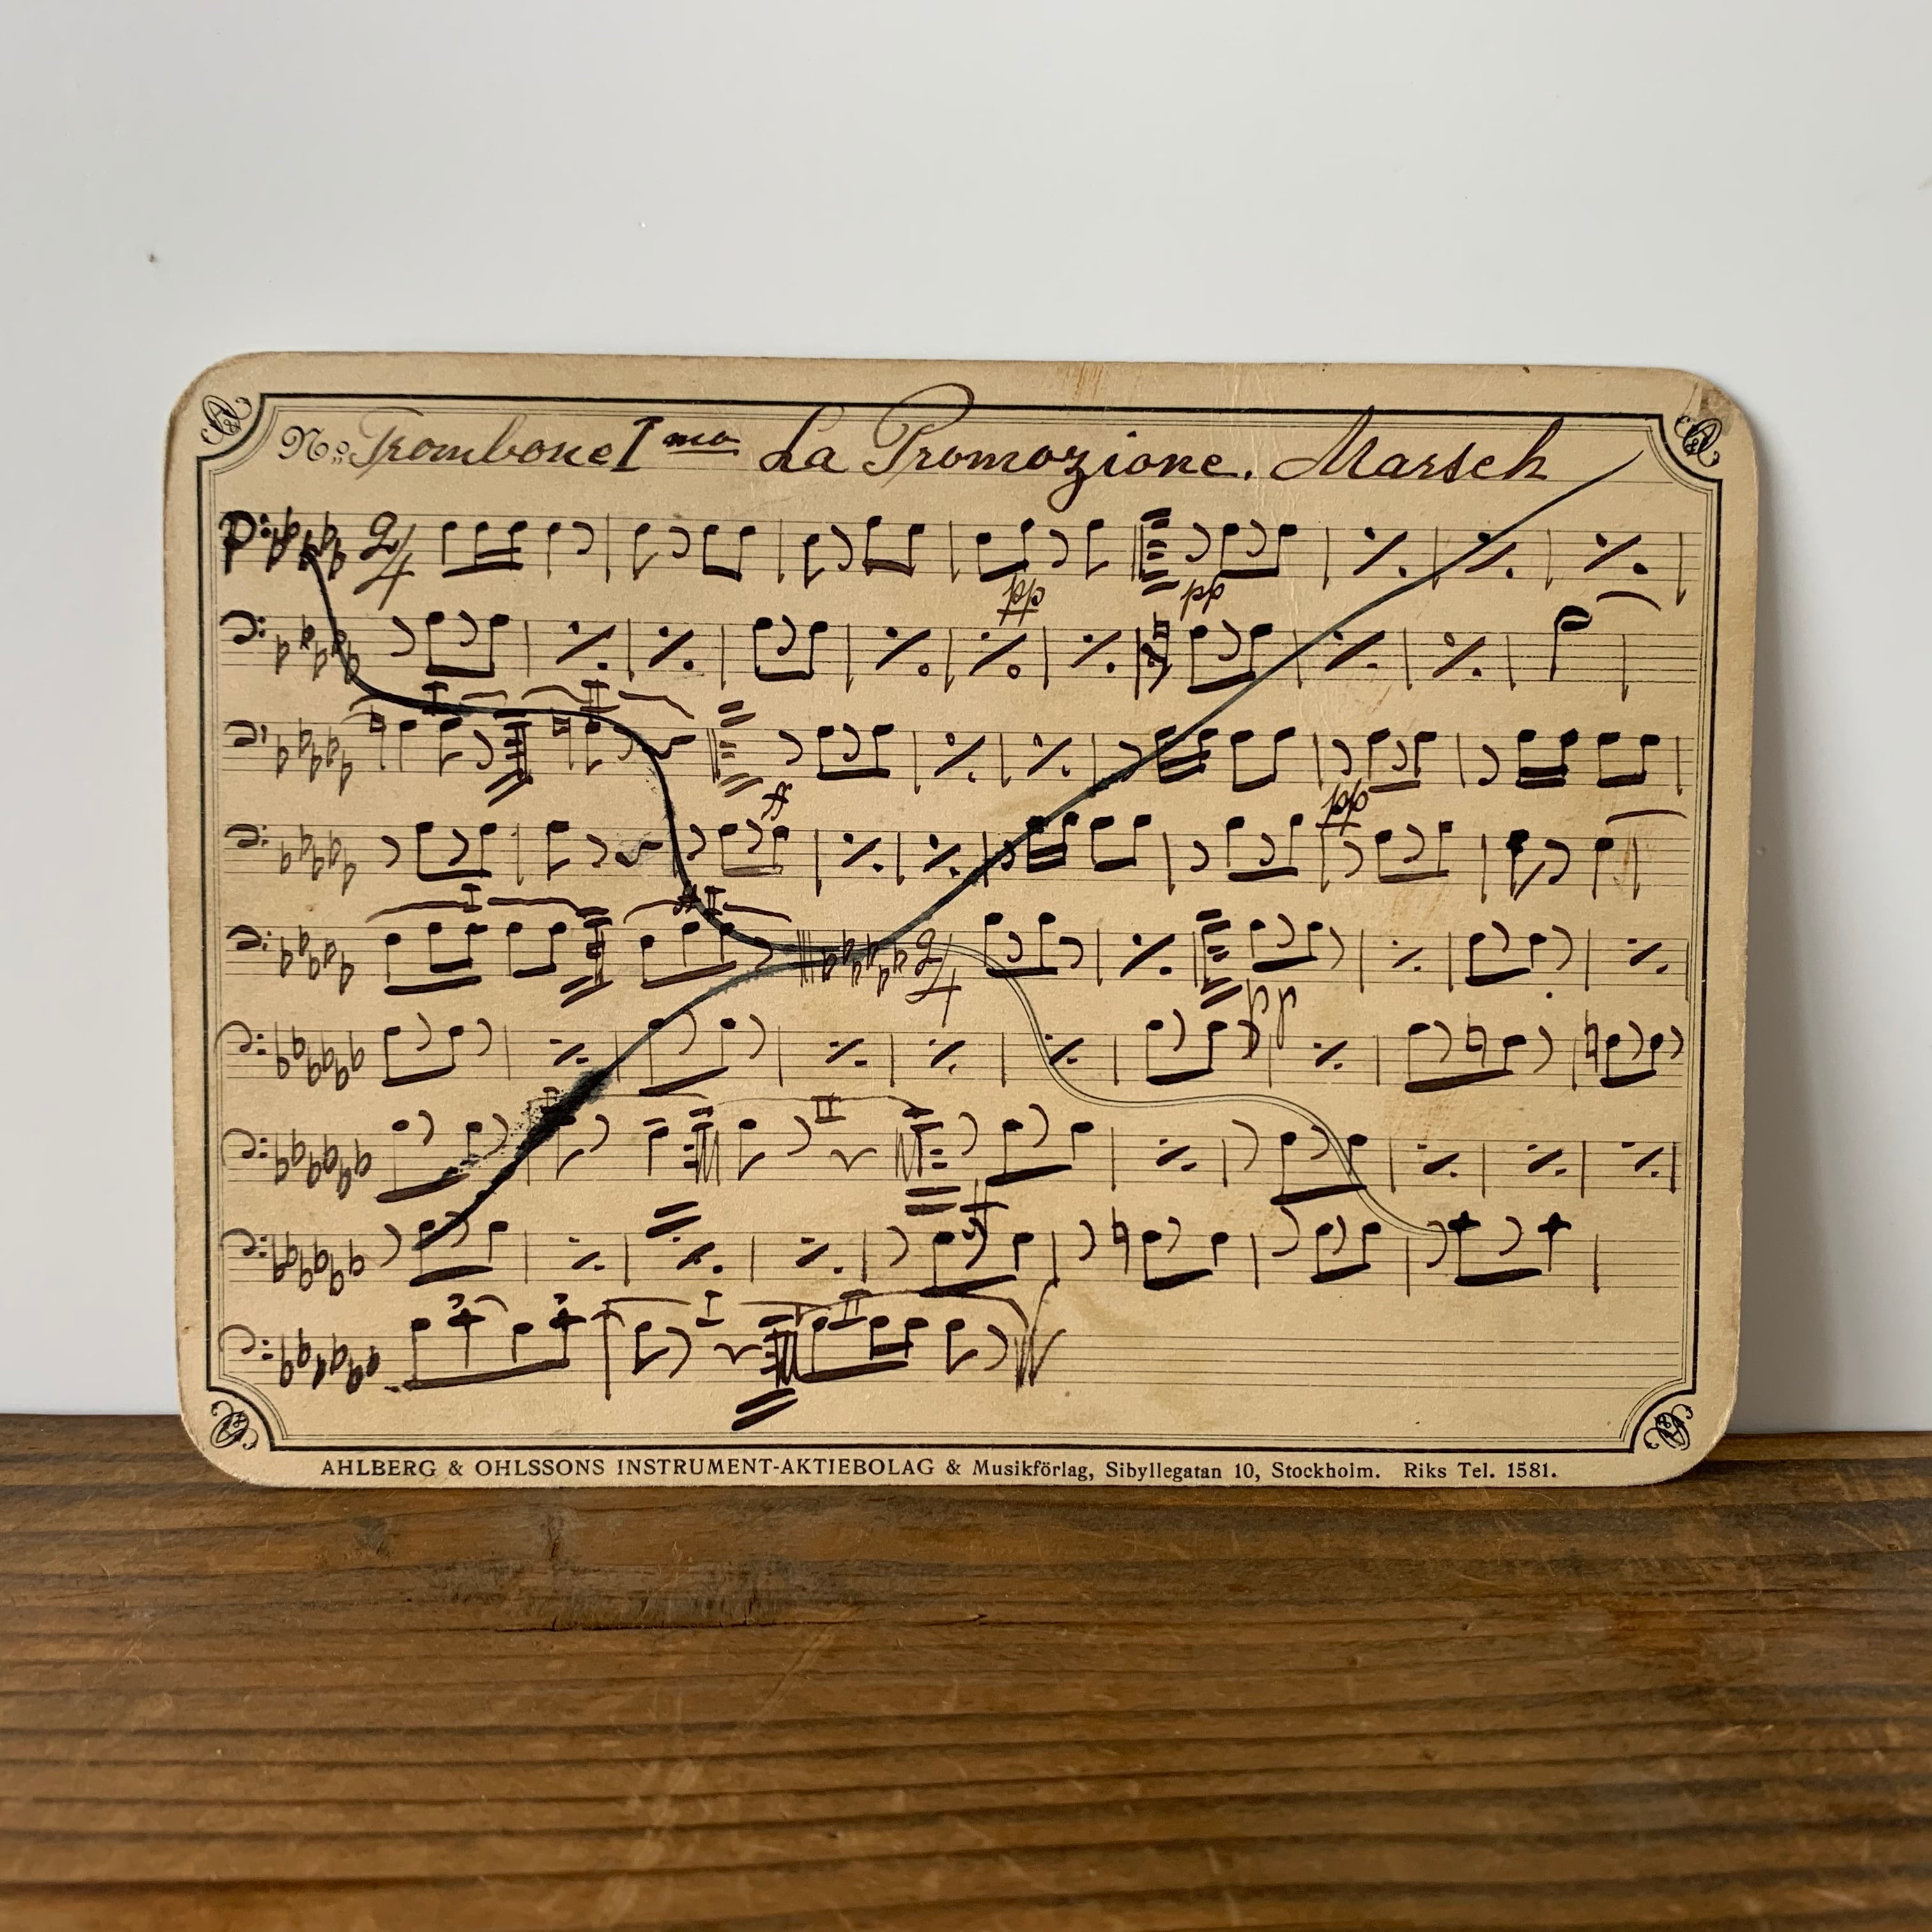 No: Trombone I mo La Promozione. Marsch
2/4
pp pp
I II
f pp
I II
2/4
pp
I II
f
I II
AHLBERG & OHLSSONS INSTRUMENT-AKTIEBOLAG & Musikförlag, Sibyllegatan 10, Stockholm. Riks Tel. 1581.